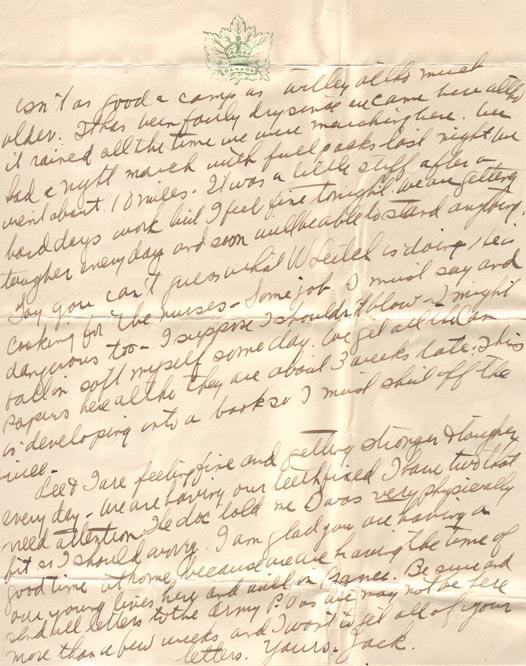 CANADA
isn't as good a camp as Witley altho much
older. It has been fairly dry since we came here altho
it rained all the time we were marching here. We
had a night march with full packs last night. We
went about 10 miles. It was a little stiff after a
hard days work but I feel fine tonight. We are getting
tougher every day and soon will be able to stand anything.
Say you can't guess what is doing. He is
cooking for the nurses - Some job I must say and
dangerous too - I suppose I shouldn't blow - I might
fall on soft myself some day. We get all the Can
Papers here altho they are about 3 weeks late. This
is developing into a book so I must shut off the
Lee & I are feeling fine and getting stronger & tougher
every day - we are having our teeth fixed I have two that
need attention. The doc told me I was very physically
fit so I should worry. I am glad you are having a
good time at home because we are having the time of
our young lives here and will in France. Be sure and
send all letters to the Army P.O as we may not be here
more than a few weeks and I want to get all of your
letters. Yours - Jack.